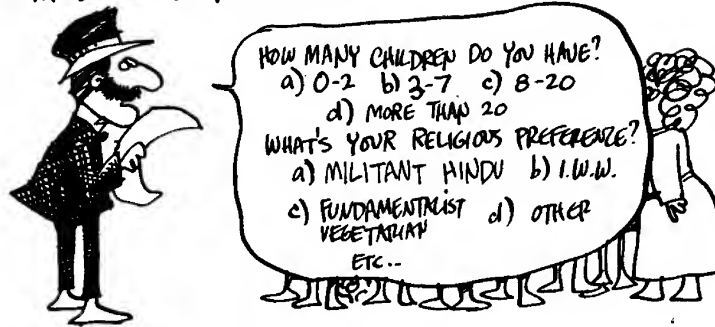 HOW MANY CHILDREN DO YOU HAVE?
a) 0-2 b) 3-7 c) 8-20
d) MORE THAN 20
WHAT'S YOUR RELIGIOUS PREFERENCE?
a) MILITANT HINDU b) I.W.W.
c) FUNDAMENTALIST VEGETARIAN d) OTHER
ETC..